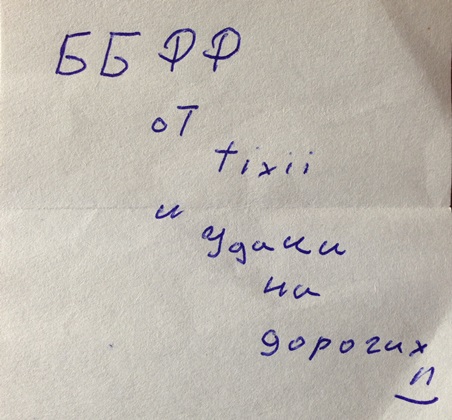 ББФФ
от
tixii
и
Удаки
на
дорогих
п